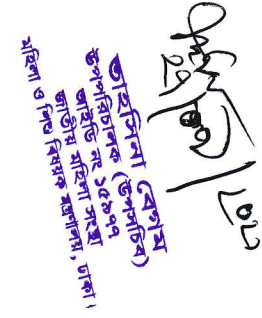 তাহমিনা বেগম
উপপরিচালক (উপসচিব)
আইডি নং ১৫৮৭৭
জাতীয় মহিলা সংস্থা
মহিলা ও শিশু বিষয়ক মন্ত্রণালয়, ঢাকা।